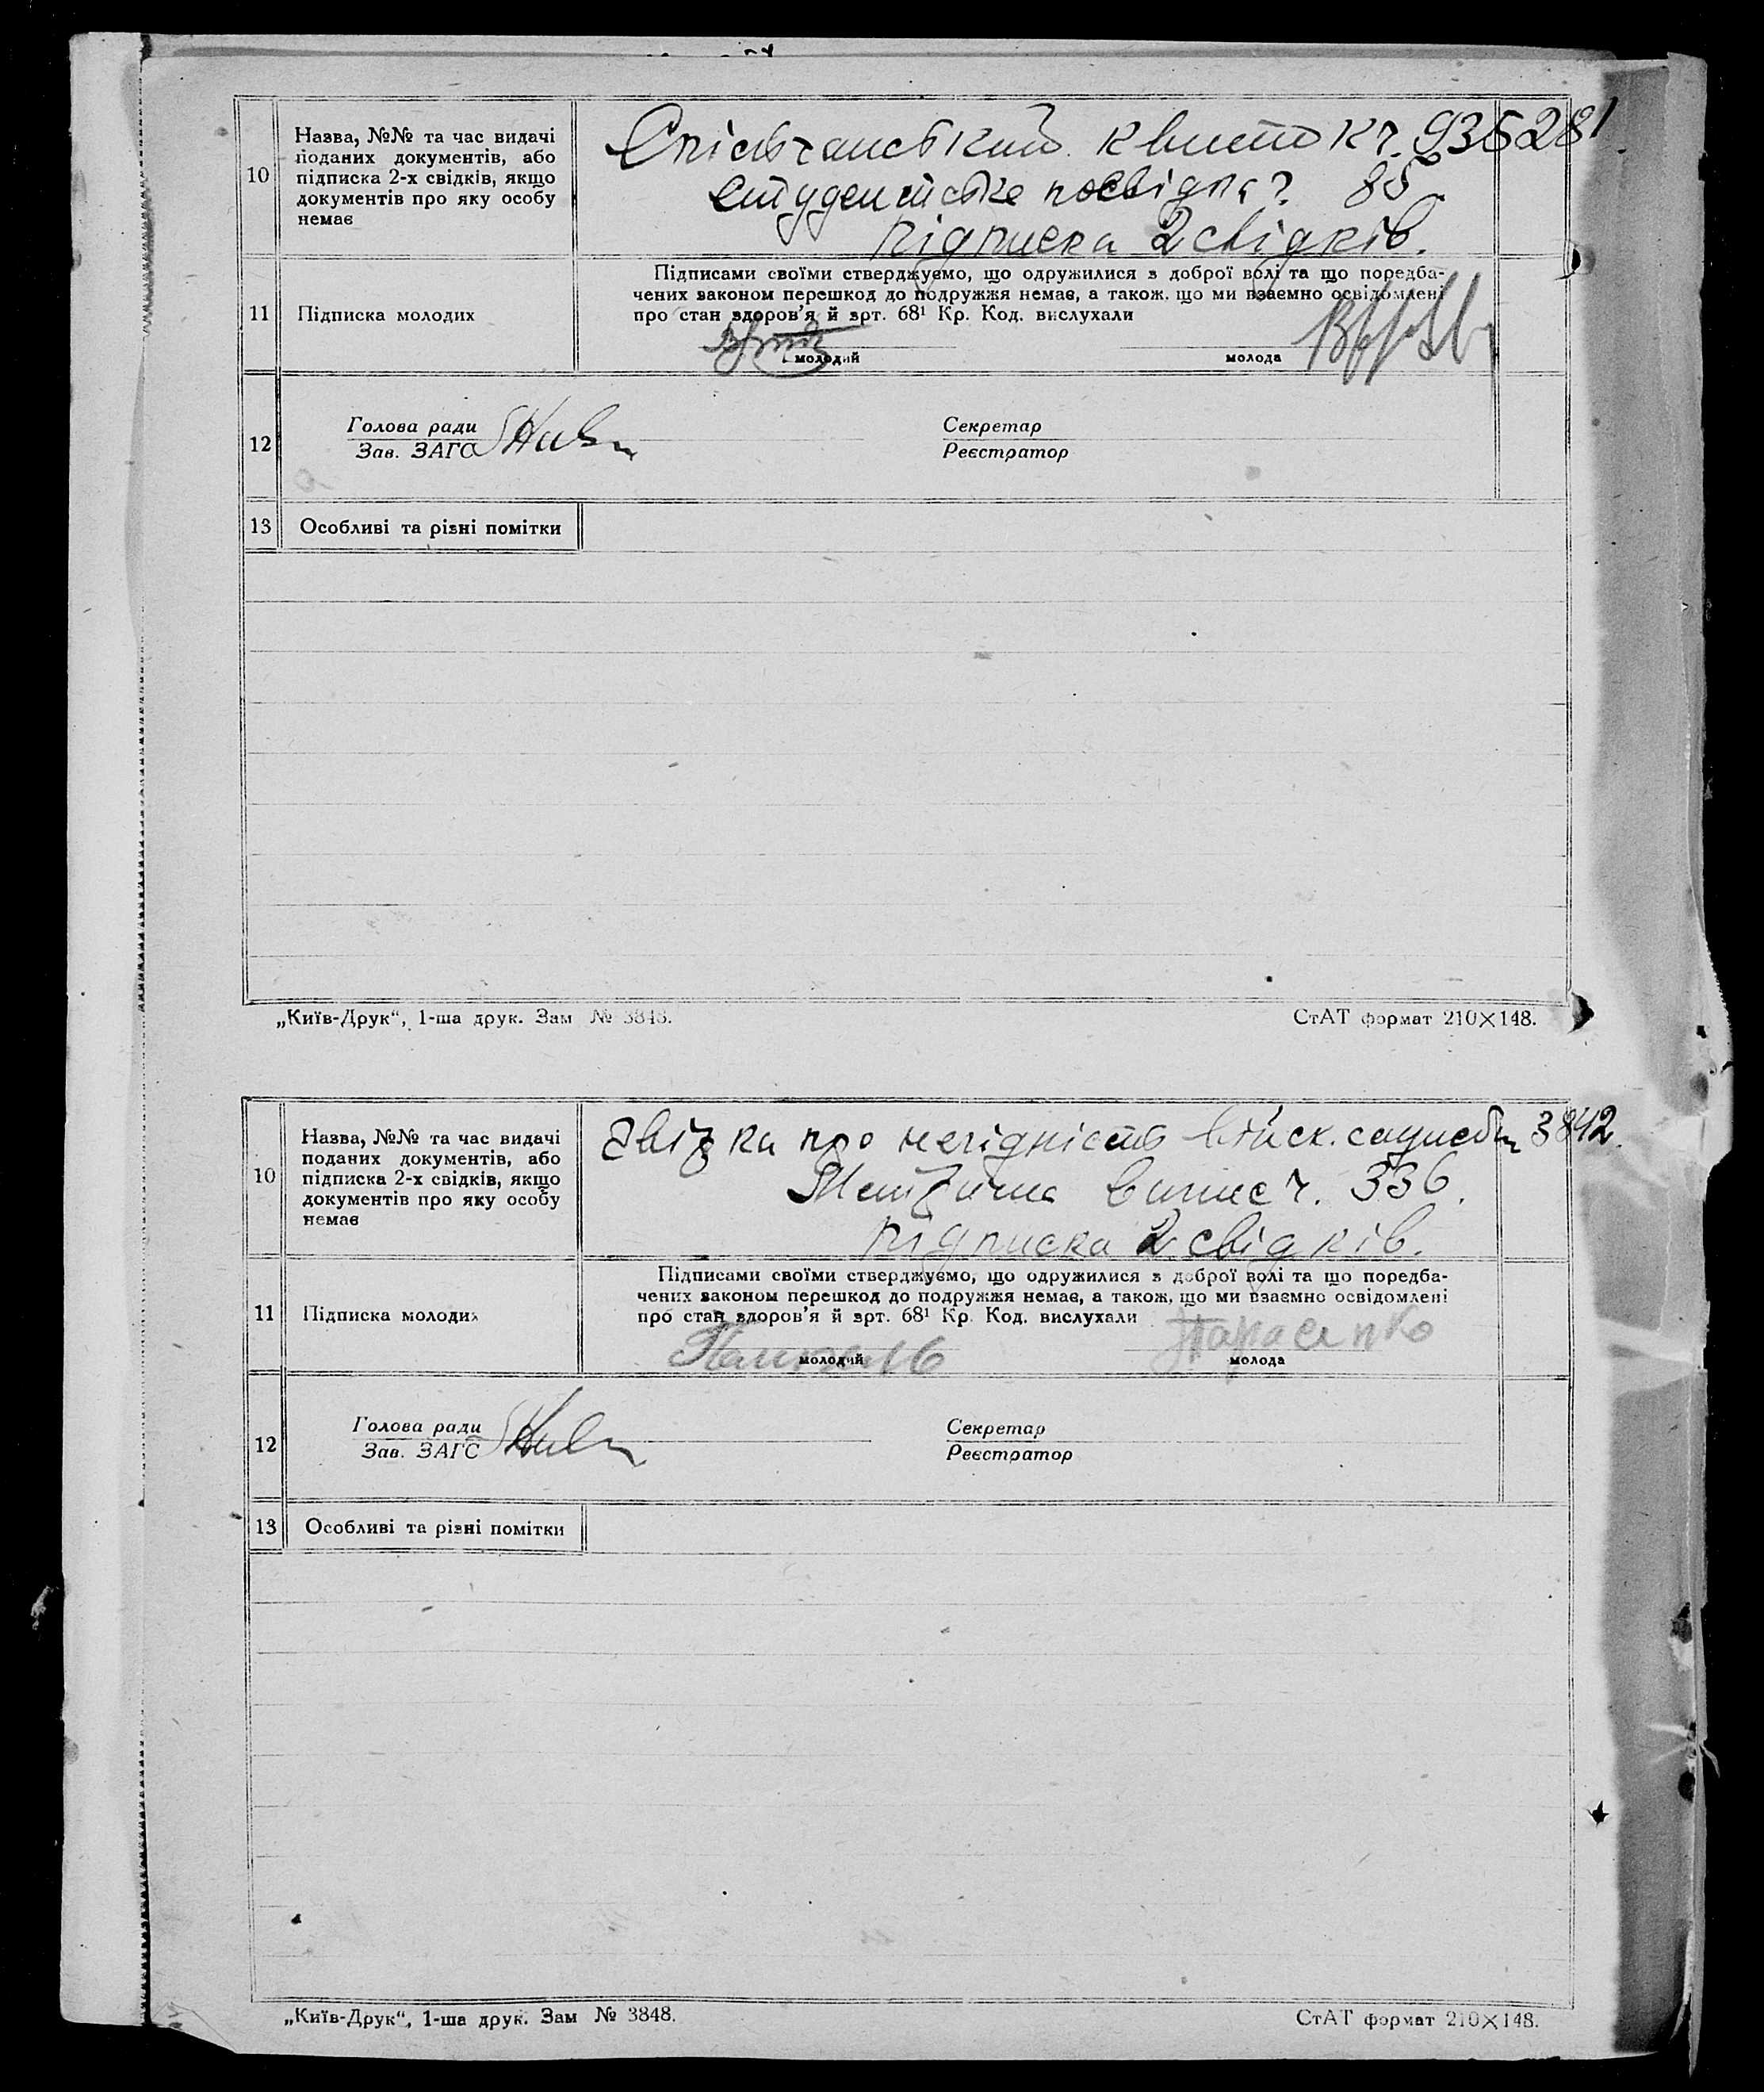 10
Назва, №№ та час видачі
поданих документів, або
підписка 2-х свідків, якщо
документів про яку особу
немає
Спілчанський квиток ч. 936281
студентське посвідка? 85.
підписка 2 свідків.
11
Підписка молодих
Підписами своїми стверджуємо, що одружилися з доброї волі та що поредба-
чених законом перешкод до подружжя немає, а також, що ми взаємно освідомлені
про стан здоров'я й арт. 68¹ Кр. Код. вислухали
молодий
молода
12
Голова ради
Зав. ЗАГС
Секретар
Реєстратор
13
Особливі та різні помітки
„Київ-Друк“, 1-ша друк. Зам № 3848.
СтАТ формат 210×148.
10
Назва, №№ та час видачі
поданих документів, або
підписка 2-х свідків, якщо
документів про яку особу
немає
Звідка про негідність військ. служби 3842.
Метрична випис ч. 336.
підписка 2 свідків.
11
Підписка молодих
Підписами своїми стверджуємо, що одружилися з доброї волі та що поредба-
чених законом перешкод до подружжя немає, а також, що ми взаємно освідомлені
про стан здоров'я й арт. 68¹ Кр. Код. вислухали
молодий
Тарасенко
молода
12
Голова ради
Зав. ЗАГС
Секретар
Реєстратор
13
Особливі та різні помітки
„Київ-Друк“, 1-ша друк. Зам № 3848.
СтАТ формат 210×148.